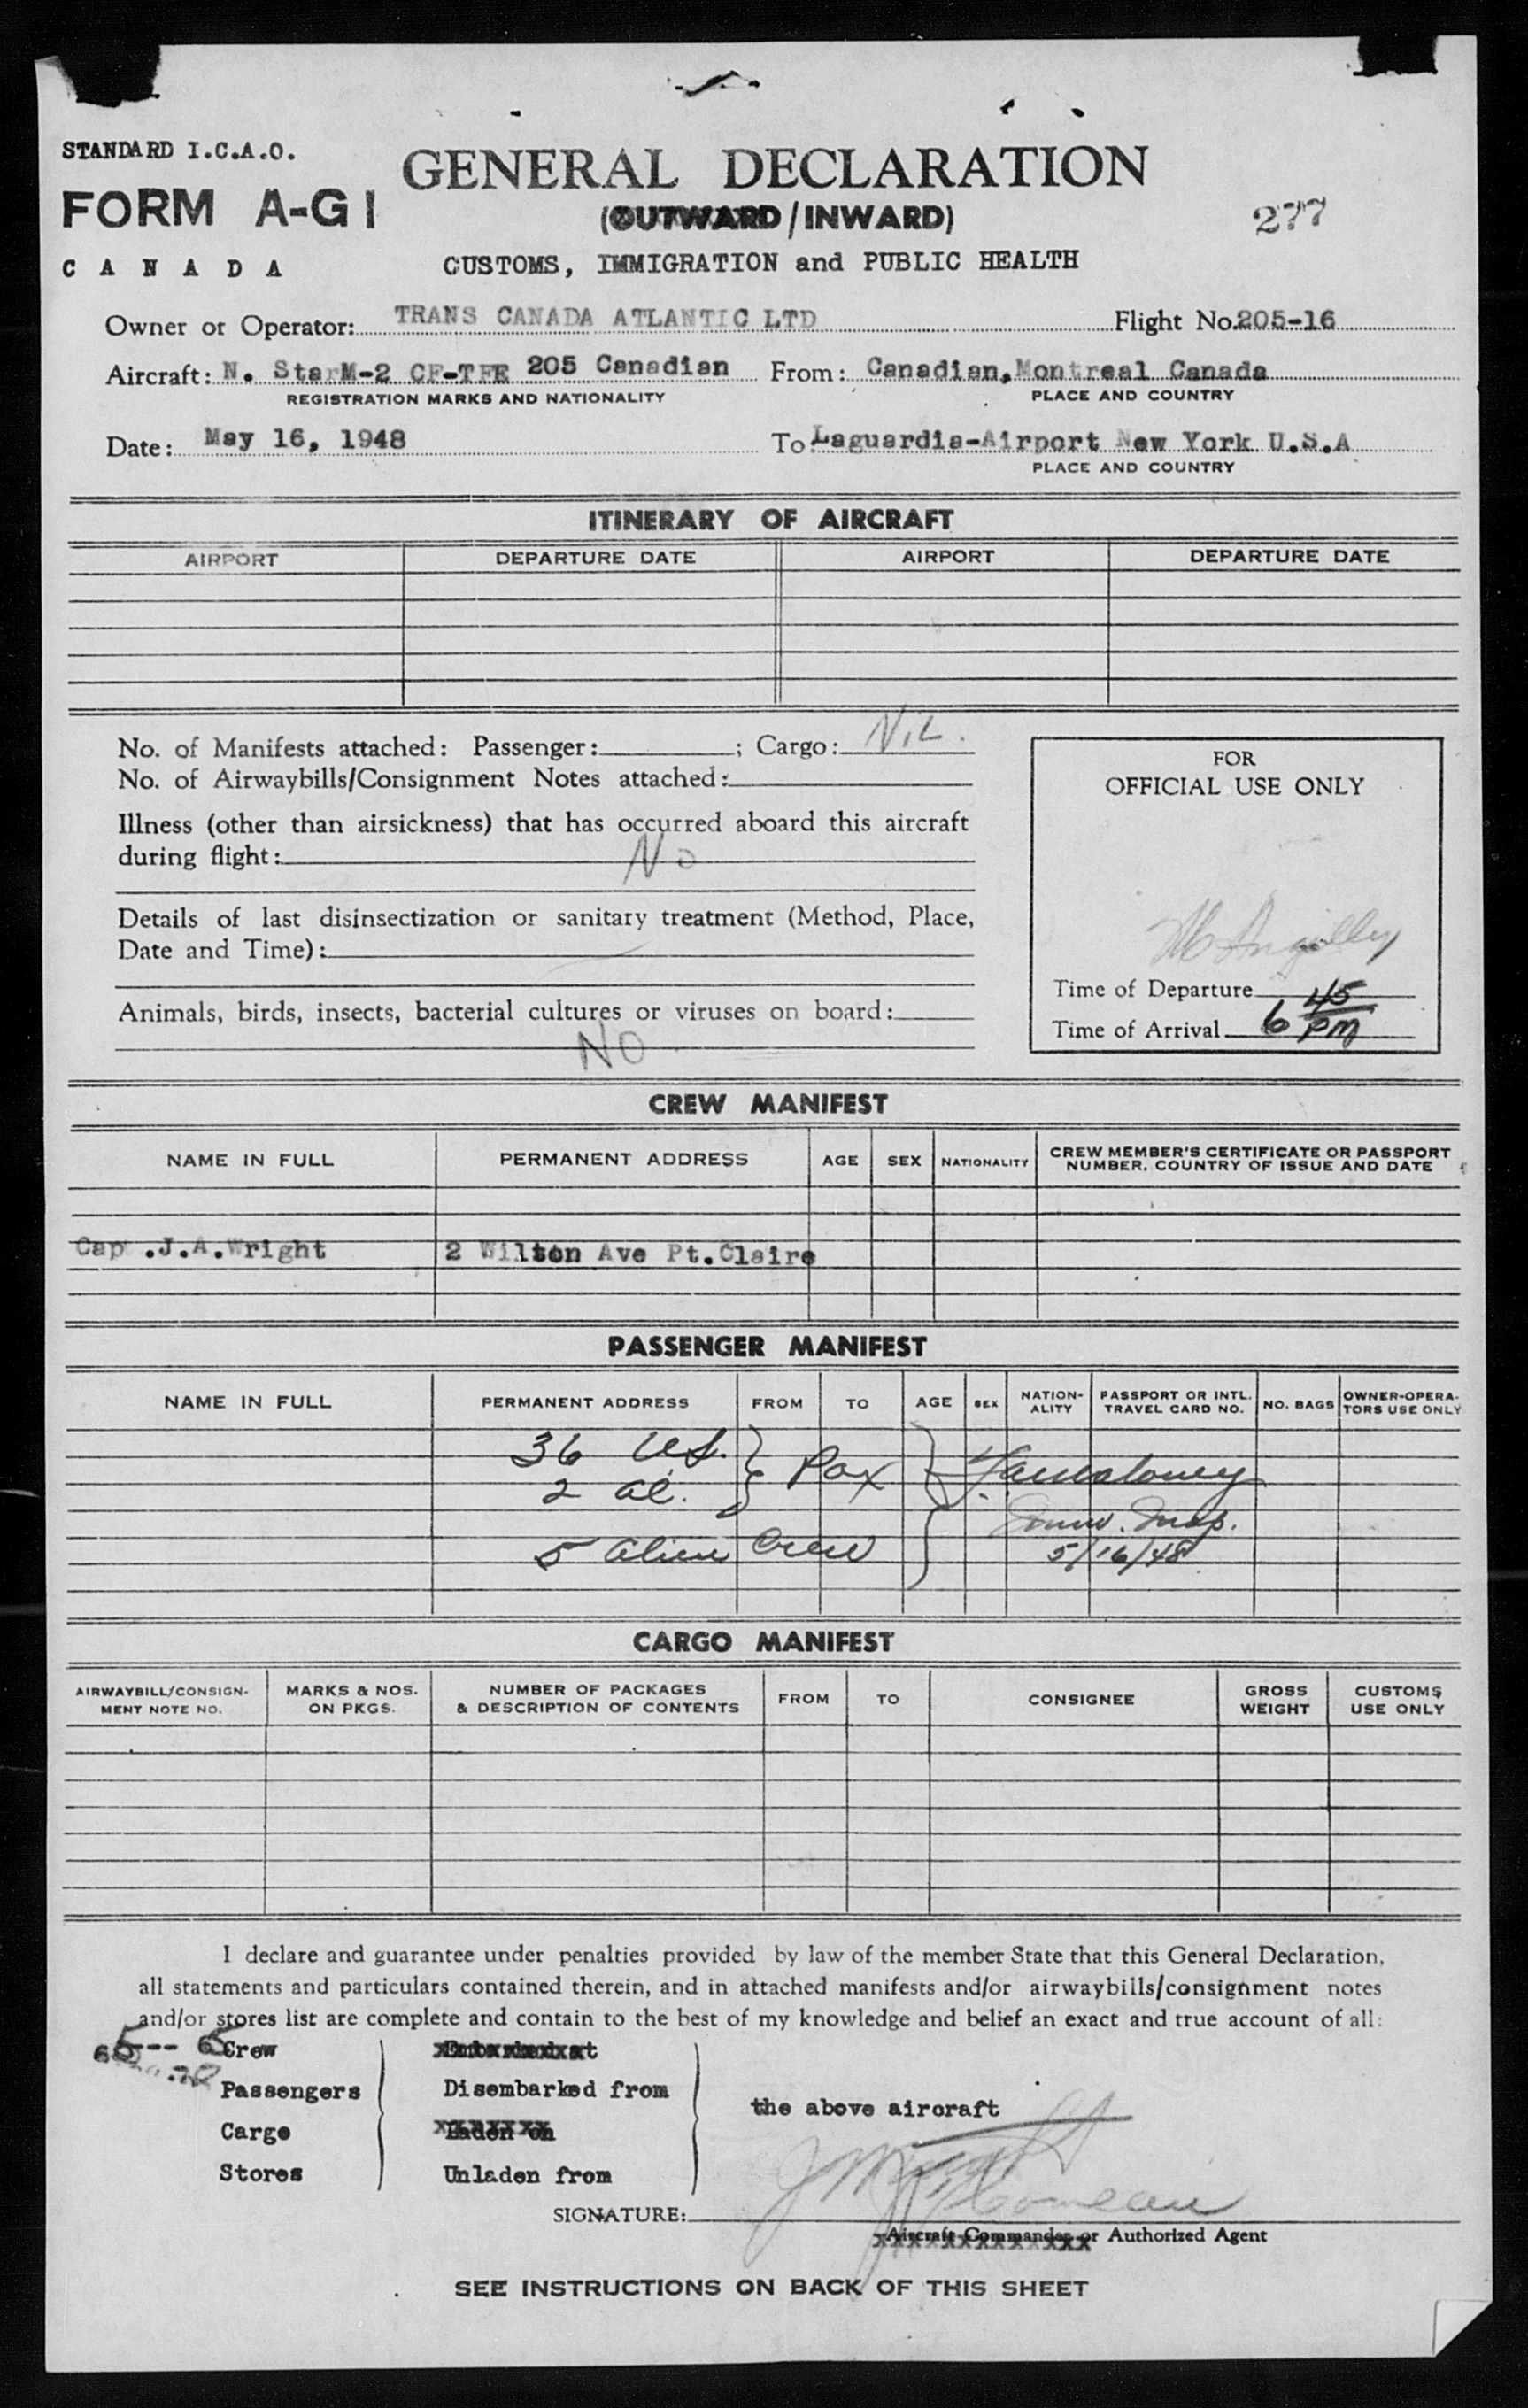 STANDARD I.C.A.O.
GENERAL DECLARATION
FORM A-G1
(OUTWARD/INWARD)
277
CANADA
CUSTOMS, IMMIGRATION and PUBLIC HEALTH
Owner or Operator: TRANS CANADA ATLANTIC LTD Flight No. 205-16
Aircraft: N. StarM-2 CF-TFE 205 Canadian From: Canadian, Montreal Canada
REGISTRATION MARKS AND NATIONALITY PLACE AND COUNTRY
Date: May 16, 1948 To: Laguardia-Airport New York U.S.A
PLACE AND COUNTRY
ITINERARY OF AIRCRAFT
AIRPORT DEPARTURE DATE AIRPORT DEPARTURE DATE
No. of Manifests attached: Passenger: ; Cargo: Nil.
No. of Airwaybills/Consignment Notes attached:
Illness (other than airsickness) that has occurred aboard this aircraft
during flight: No
Details of last disinsectization or sanitary treatment (Method, Place,
Date and Time):
Animals, birds, insects, bacterial cultures or viruses on board:
NO
FOR
OFFICIAL USE ONLY
Time of Departure
Time of Arrival 6 45 PM
CREW MANIFEST
NAME IN FULL PERMANENT ADDRESS AGE SEX NATIONALITY CREW MEMBER'S CERTIFICATE OR PASSPORT
NUMBER, COUNTRY OF ISSUE AND DATE
Cap .J.A.Wright 2 Wilton Ave Pt.Claire
PASSENGER MANIFEST
NAME IN FULL PERMANENT ADDRESS FROM TO AGE SEX NATION-
ALITY PASSPORT OR INTL.
TRAVEL CARD NO. NO. BAGS OWNER-OPERA-
TORS USE ONLY
36 US.
2 al. Pax
Immw. Insp.
5 alien Crew 5/16/48
CARGO MANIFEST
AIRWAYBILL/CONSIGN-
MENT NOTE NO. MARKS & NOS.
ON PKGS. NUMBER OF PACKAGES
& DESCRIPTION OF CONTENTS FROM TO CONSIGNEE GROSS
WEIGHT CUSTOMS
USE ONLY
I declare and guarantee under penalties provided by law of the member State that this General Declaration,
all statements and particulars contained therein, and in attached manifests and/or airwaybills/consignment notes
and/or stores list are complete and contain to the best of my knowledge and belief an exact and true account of all:
Crew
Passengers Disembarked from
the above aircraft
Cargo Laden on
Stores Unladen from
SIGNATURE:
Aircraft Commander or Authorized Agent
SEE INSTRUCTIONS ON BACK OF THIS SHEET